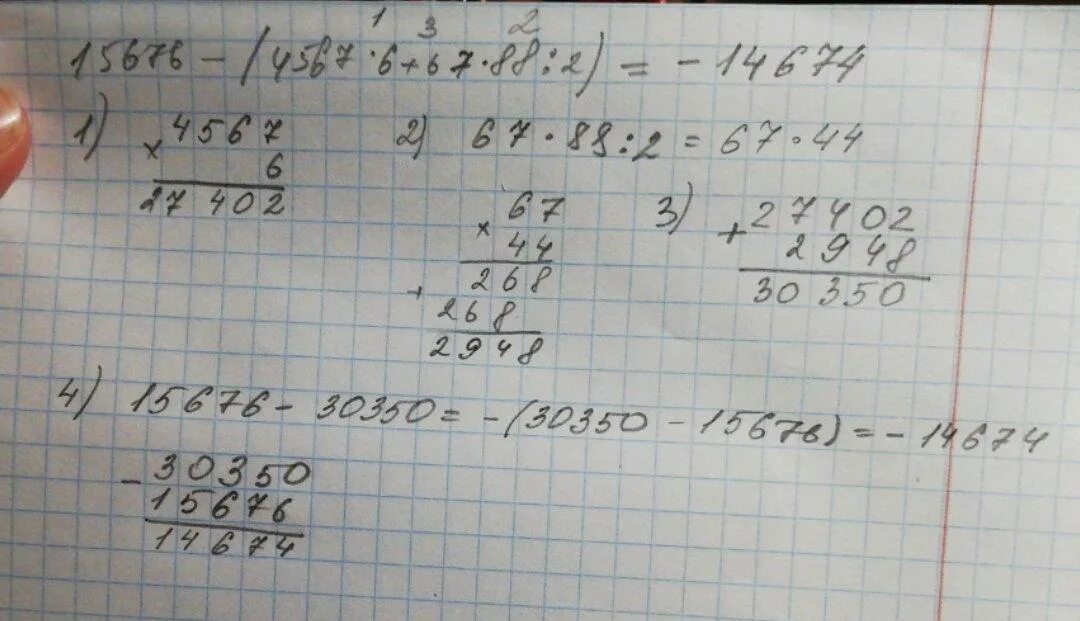 1 3 2
15676 - (4567 · 6 + 67 · 88 : 2) = - 14674
1) × 4567
6
27402
2) 67 · 88 : 2 = 67 · 44
× 67
44
+ 268
268
2948
3) + 27402
2948
30350
4) 15676 - 30350 = - (30350 - 15676) = - 14674
- 30350
15676
14674